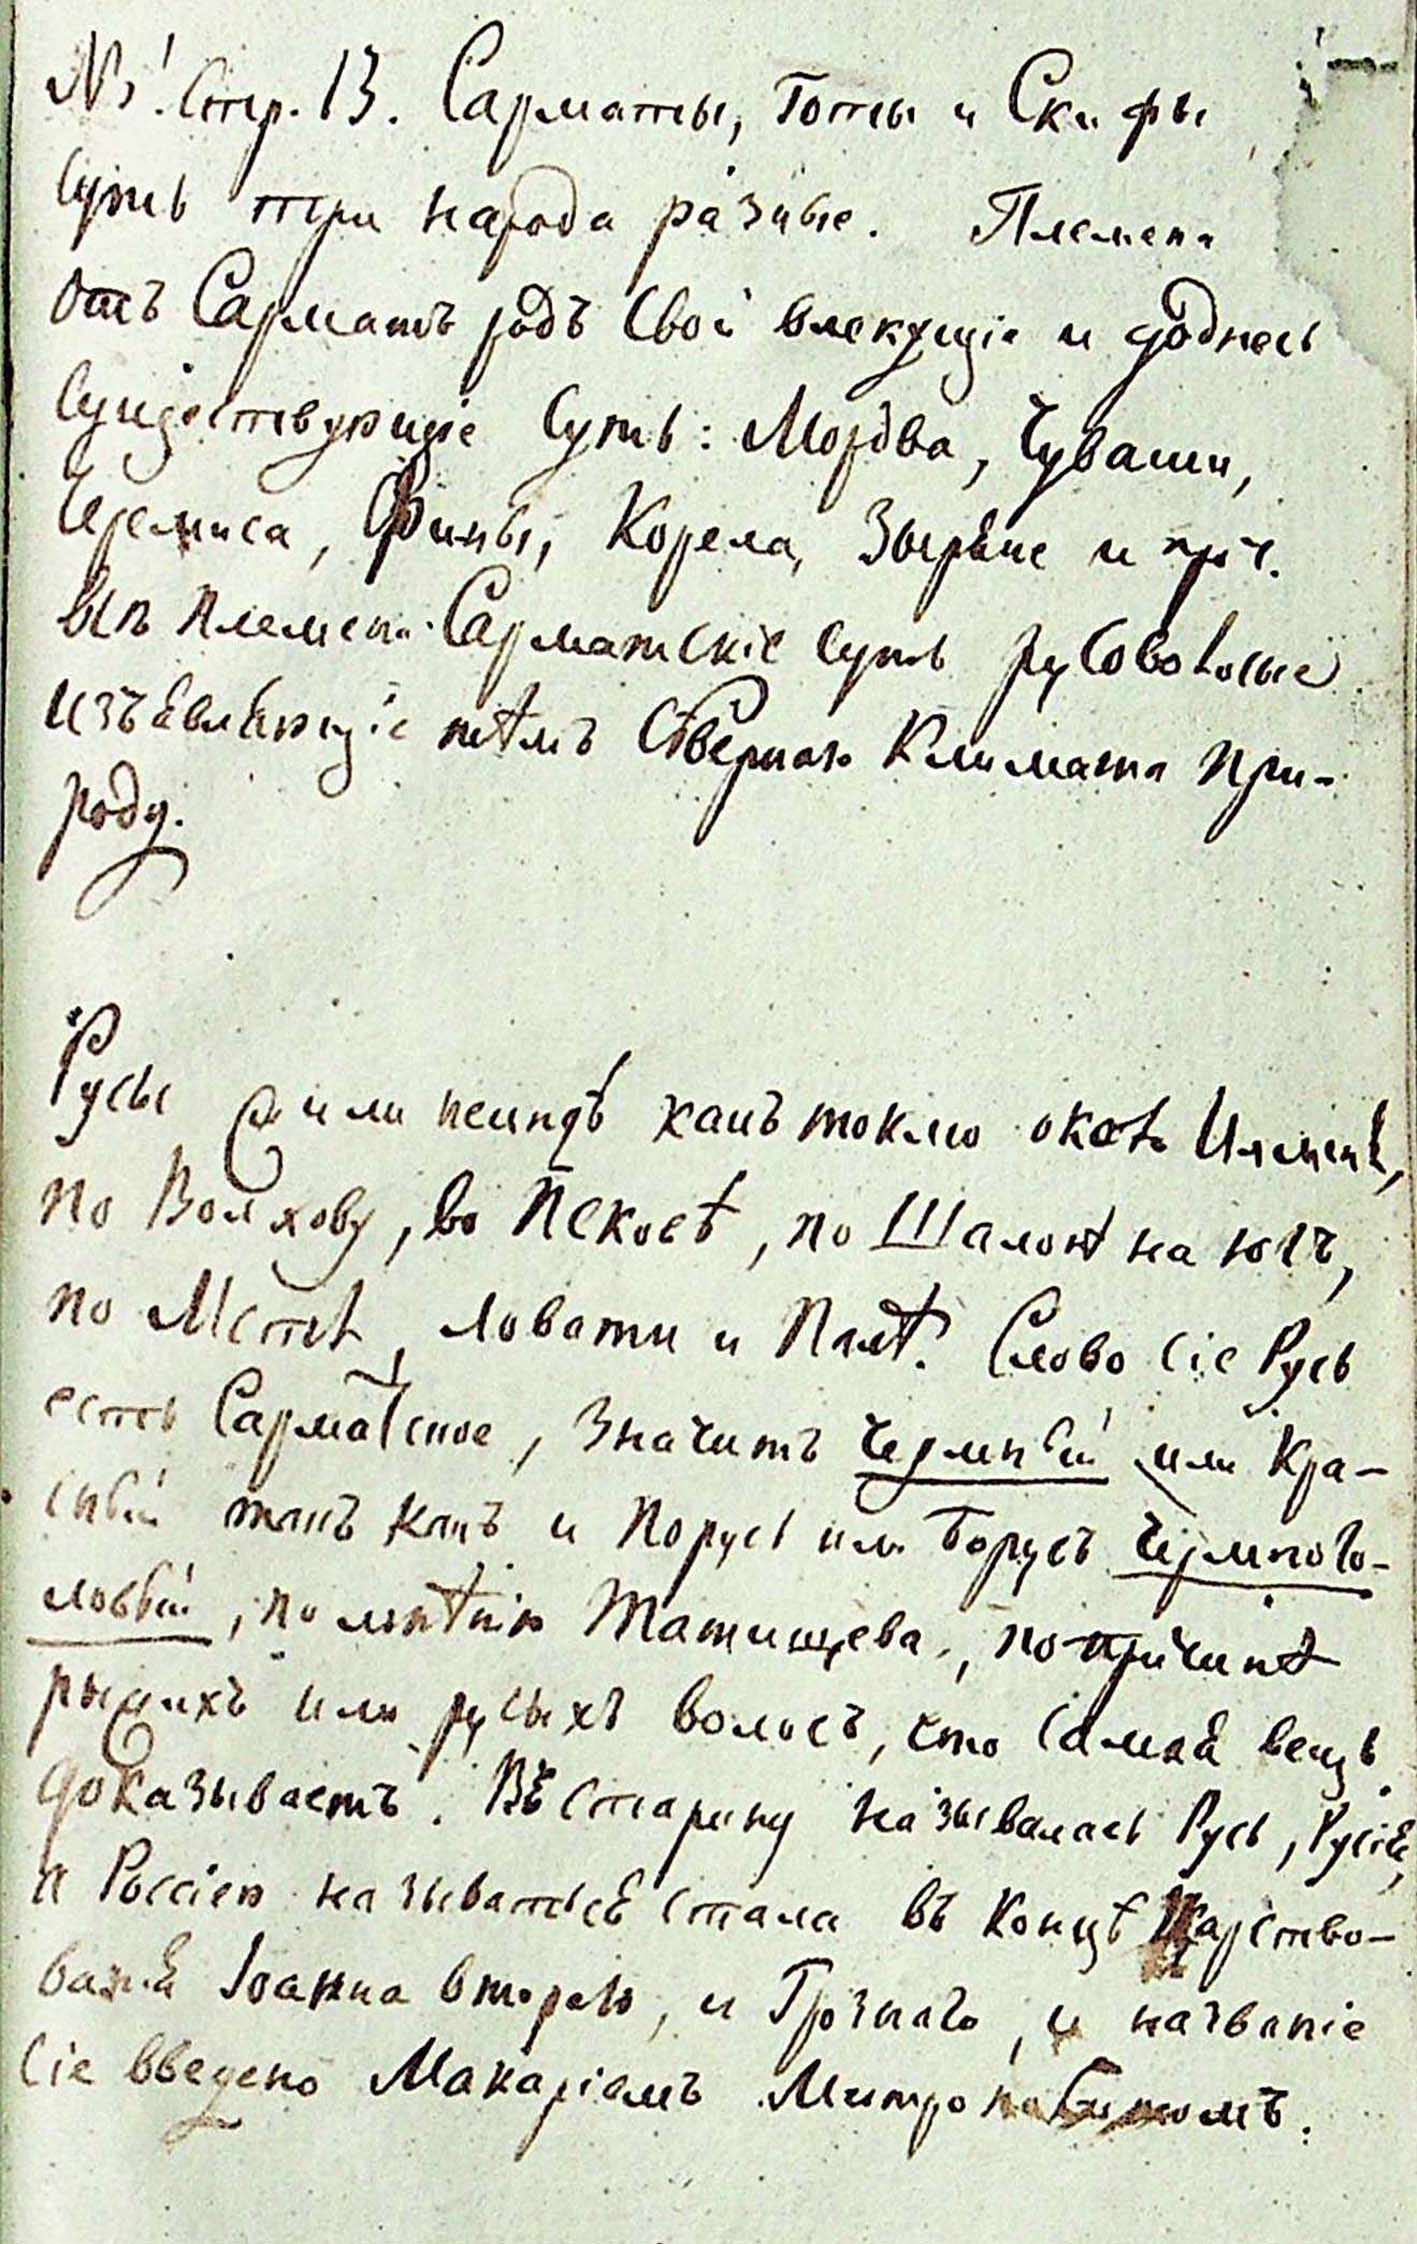 № 1. Стр. 13. Сарматы, Готы и Скифы
суть три народа разные. Племена
отъ Сарматъ родъ свой влекущіе и доднесь
существующіе суть: Мордва, Чуваши,
Черемиса, Фины, Корела, Зыряне и проч.
Всѣ племена Сарматскіе суть русоволосые
изъявляющіе тѣмъ сѣвернаго климата при-
роду.
Русы жили негдѣ какъ токмо около Илменя,
по Волхову, во Пскосѣ, по Шалонѣ на югъ,
по Мстѣ, Ловати и Полѣ. Слово сіе Русь
есть Сарматское, значитъ чермный или кра-
сный такъ какъ и Порусь или Борусъ чермного-
ловый, по мнѣнію Татищева, по причинѣ
рыжихъ или русыхъ волосъ, что самая вещь
доказываетъ. Въ старину называлась Русь, Русія,
а Россіею называться стала въ концѣ царство-
ванія Іоанна втораго, и Грознаго, и названіе
сіе введено Макаріемъ Митрополитомъ.